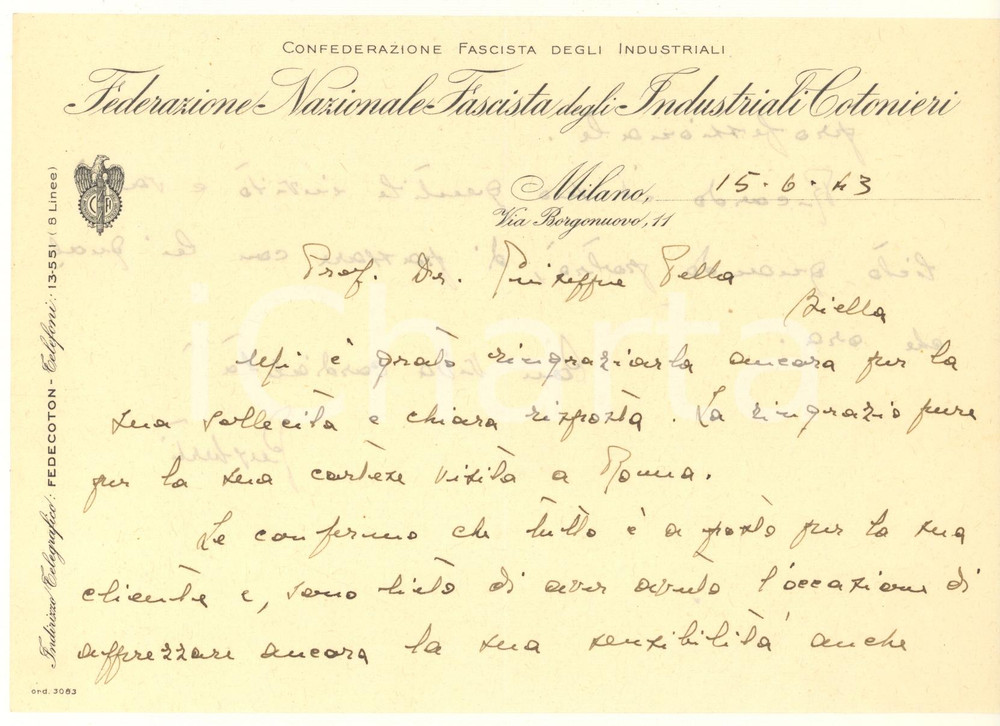 CONFEDERAZIONE FASCISTA DEGLI INDUSTRIALI
Federazione Nazionale Fascista degli Industriali Cotonieri
Milano, 15·6·43
Via Borgonuovo, 11
Indirizzo Telegrafico: FEDECOTON - Telefoni: 13-551 (8 Linee)
Prof. Dr. Giuseppe Pella
Biella
Mi è grato ringraziarla ancora per la
sua sollecita e chiara risposta. La ringrazio pure
per la sua cortese visita a Roma.
Le confermo che tutto è a posto per la sua
cliente e, sono lieto di aver avuto l'occasione di
apprezzare ancora la sua sensibilità anche
ord. 3083
iCharta